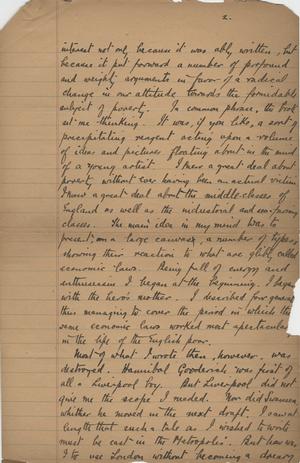 2.
interest not only because it was ably written, but
because it put forward a number of profound
and weighty arguments in favor of a radical
change in our attitude towards the formidable
subject of poverty. In common phrase, the book
set me thinking. It was, if you like, a sort of
precipitating reagent acting upon a volume
of ideas and pictures floating about in the mind
of a young artist. I knew a great deal about
poverty without ever having been an actual victim.
I knew a great deal about the middle-classes of
England as well as the industrial and
classes. The main idea in my mind was to
present, on a large canvas, a number of types
showing their reaction to what are glibly called
economic laws. Being full of energy and
enthusiasm I began at the beginning. I began
with the hero's mother. I described for
thus managing to cover the period in which the
same economic laws worked most spectacular
in the life of the English poor.
Most of what I wrote then, however, was
destroyed. Hannibal Gooderich was first of
all a Liverpool boy. But Liverpool did not
give me the scope I needed. Nor did Swansea
whither he moved in the next draft. I saw at
length that such a tale as I wished to write
must be cast in the Metropolis. But how was
I to use London without becoming a dreary